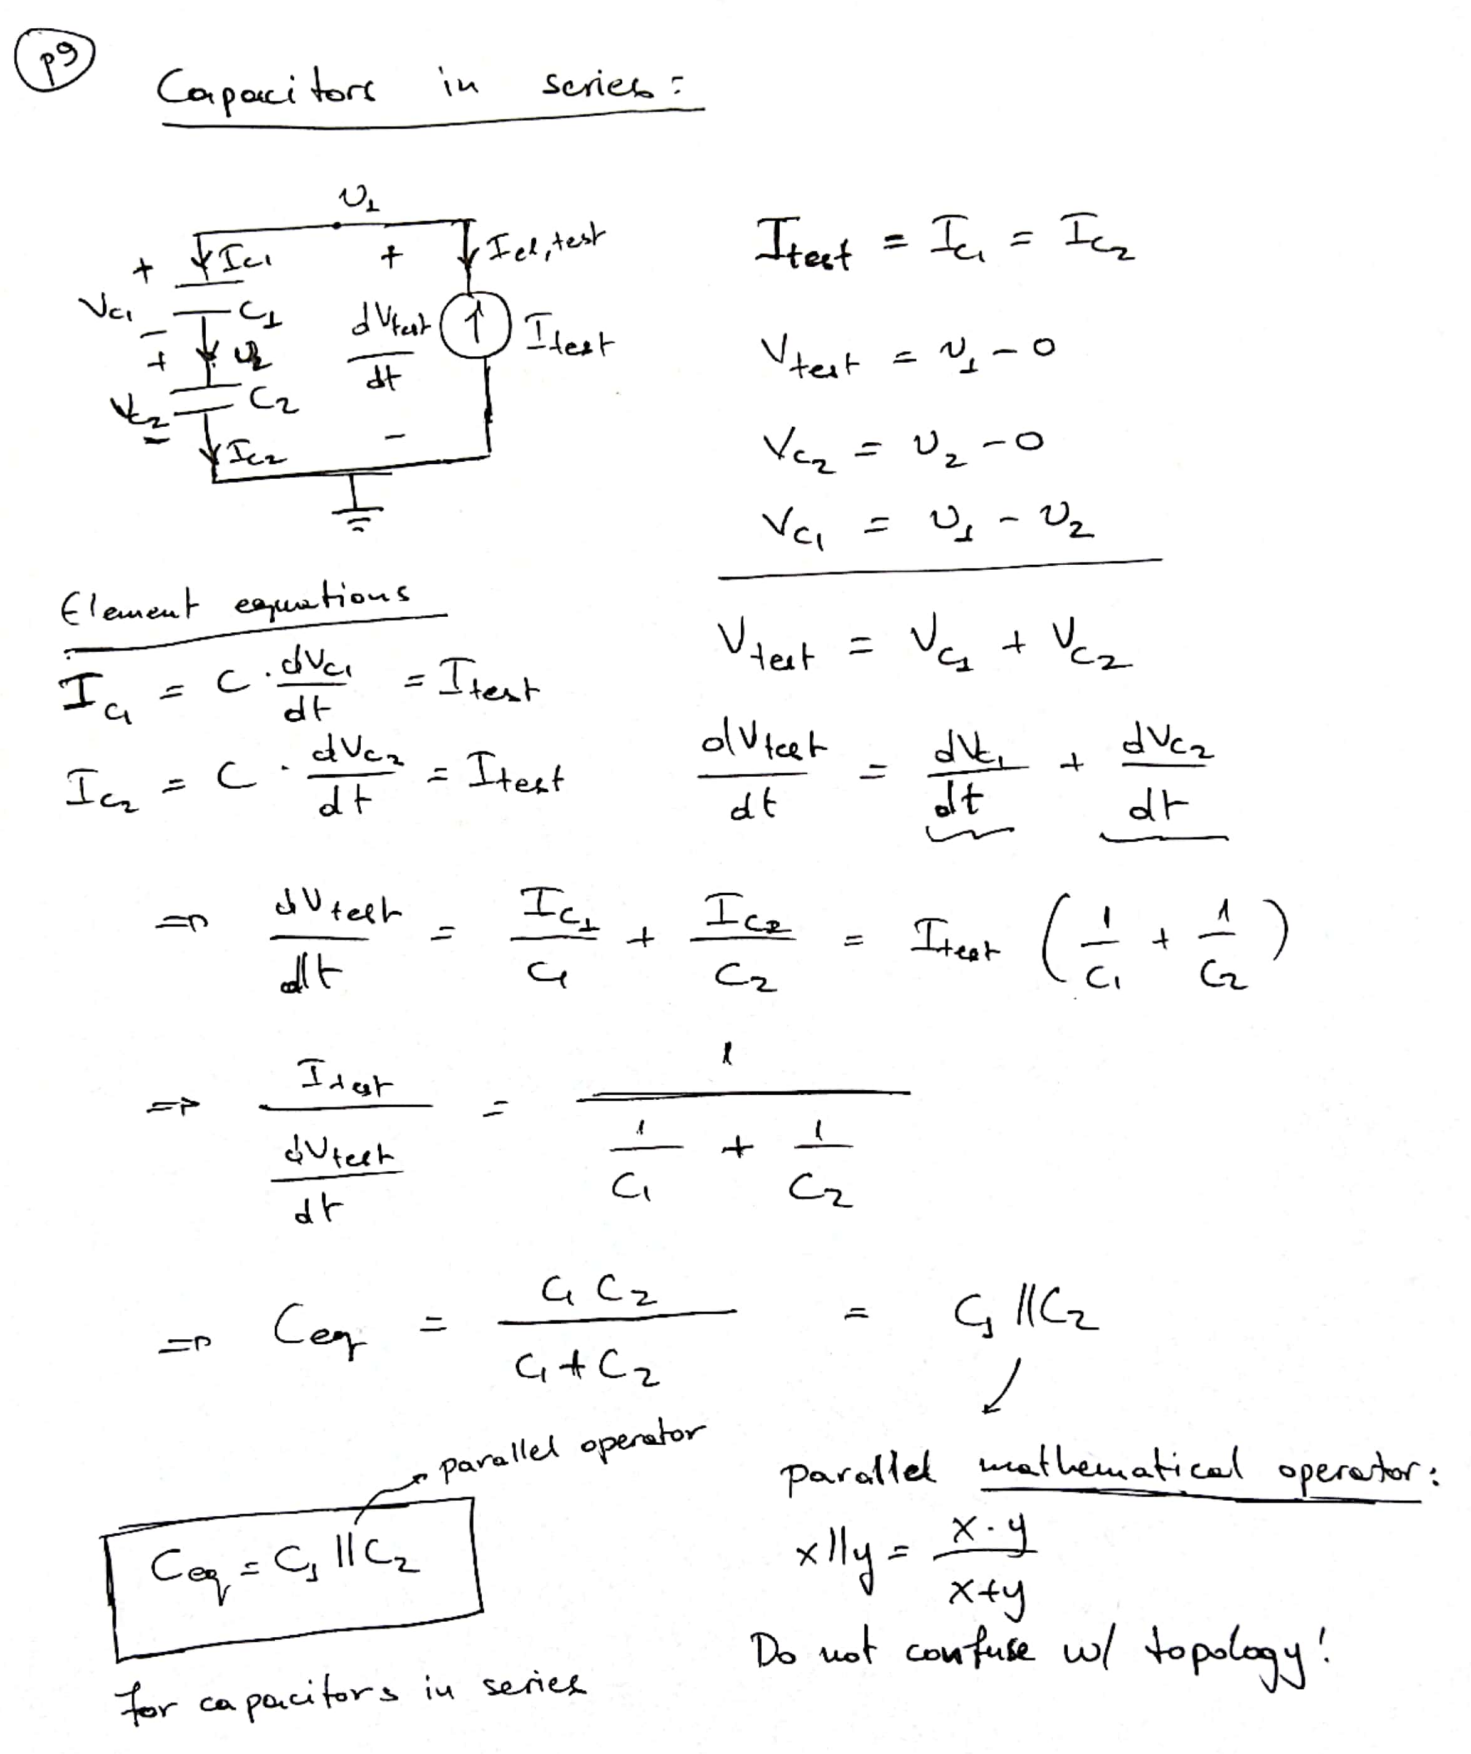 p9
Capacitors in series:
v₁
+ I_C1 + I_el,test
V_C1 C₁ dV_test/dt I_test
−
+ v₂
V_C2 C₂
− I_C2 −
I_test = I_C1 = I_C2
V_test = v₁ − 0
V_C2 = v₂ − 0
V_C1 = v₁ − v₂
V_test = V_C1 + V_C2
dV_test/dt = dV_C1/dt + dV_C2/dt
Element equations
I_C1 = C · dV_C1/dt = I_test
I_C2 = C · dV_C2/dt = I_test
⇒ dV_test/dt = I_C1/C₁ + I_C2/C₂ = I_test (1/C₁ + 1/C₂)
⇒ I_test/(dV_test/dt) = 1/(1/C₁ + 1/C₂)
⇒ C_eq = C₁ C₂/(C₁ + C₂) = C₁ // C₂
parallel operator
C_eq = C₁ // C₂
for capacitors in series
parallel mathematical operator:
x//y = x·y/(x+y)
Do not confuse w/ topology!